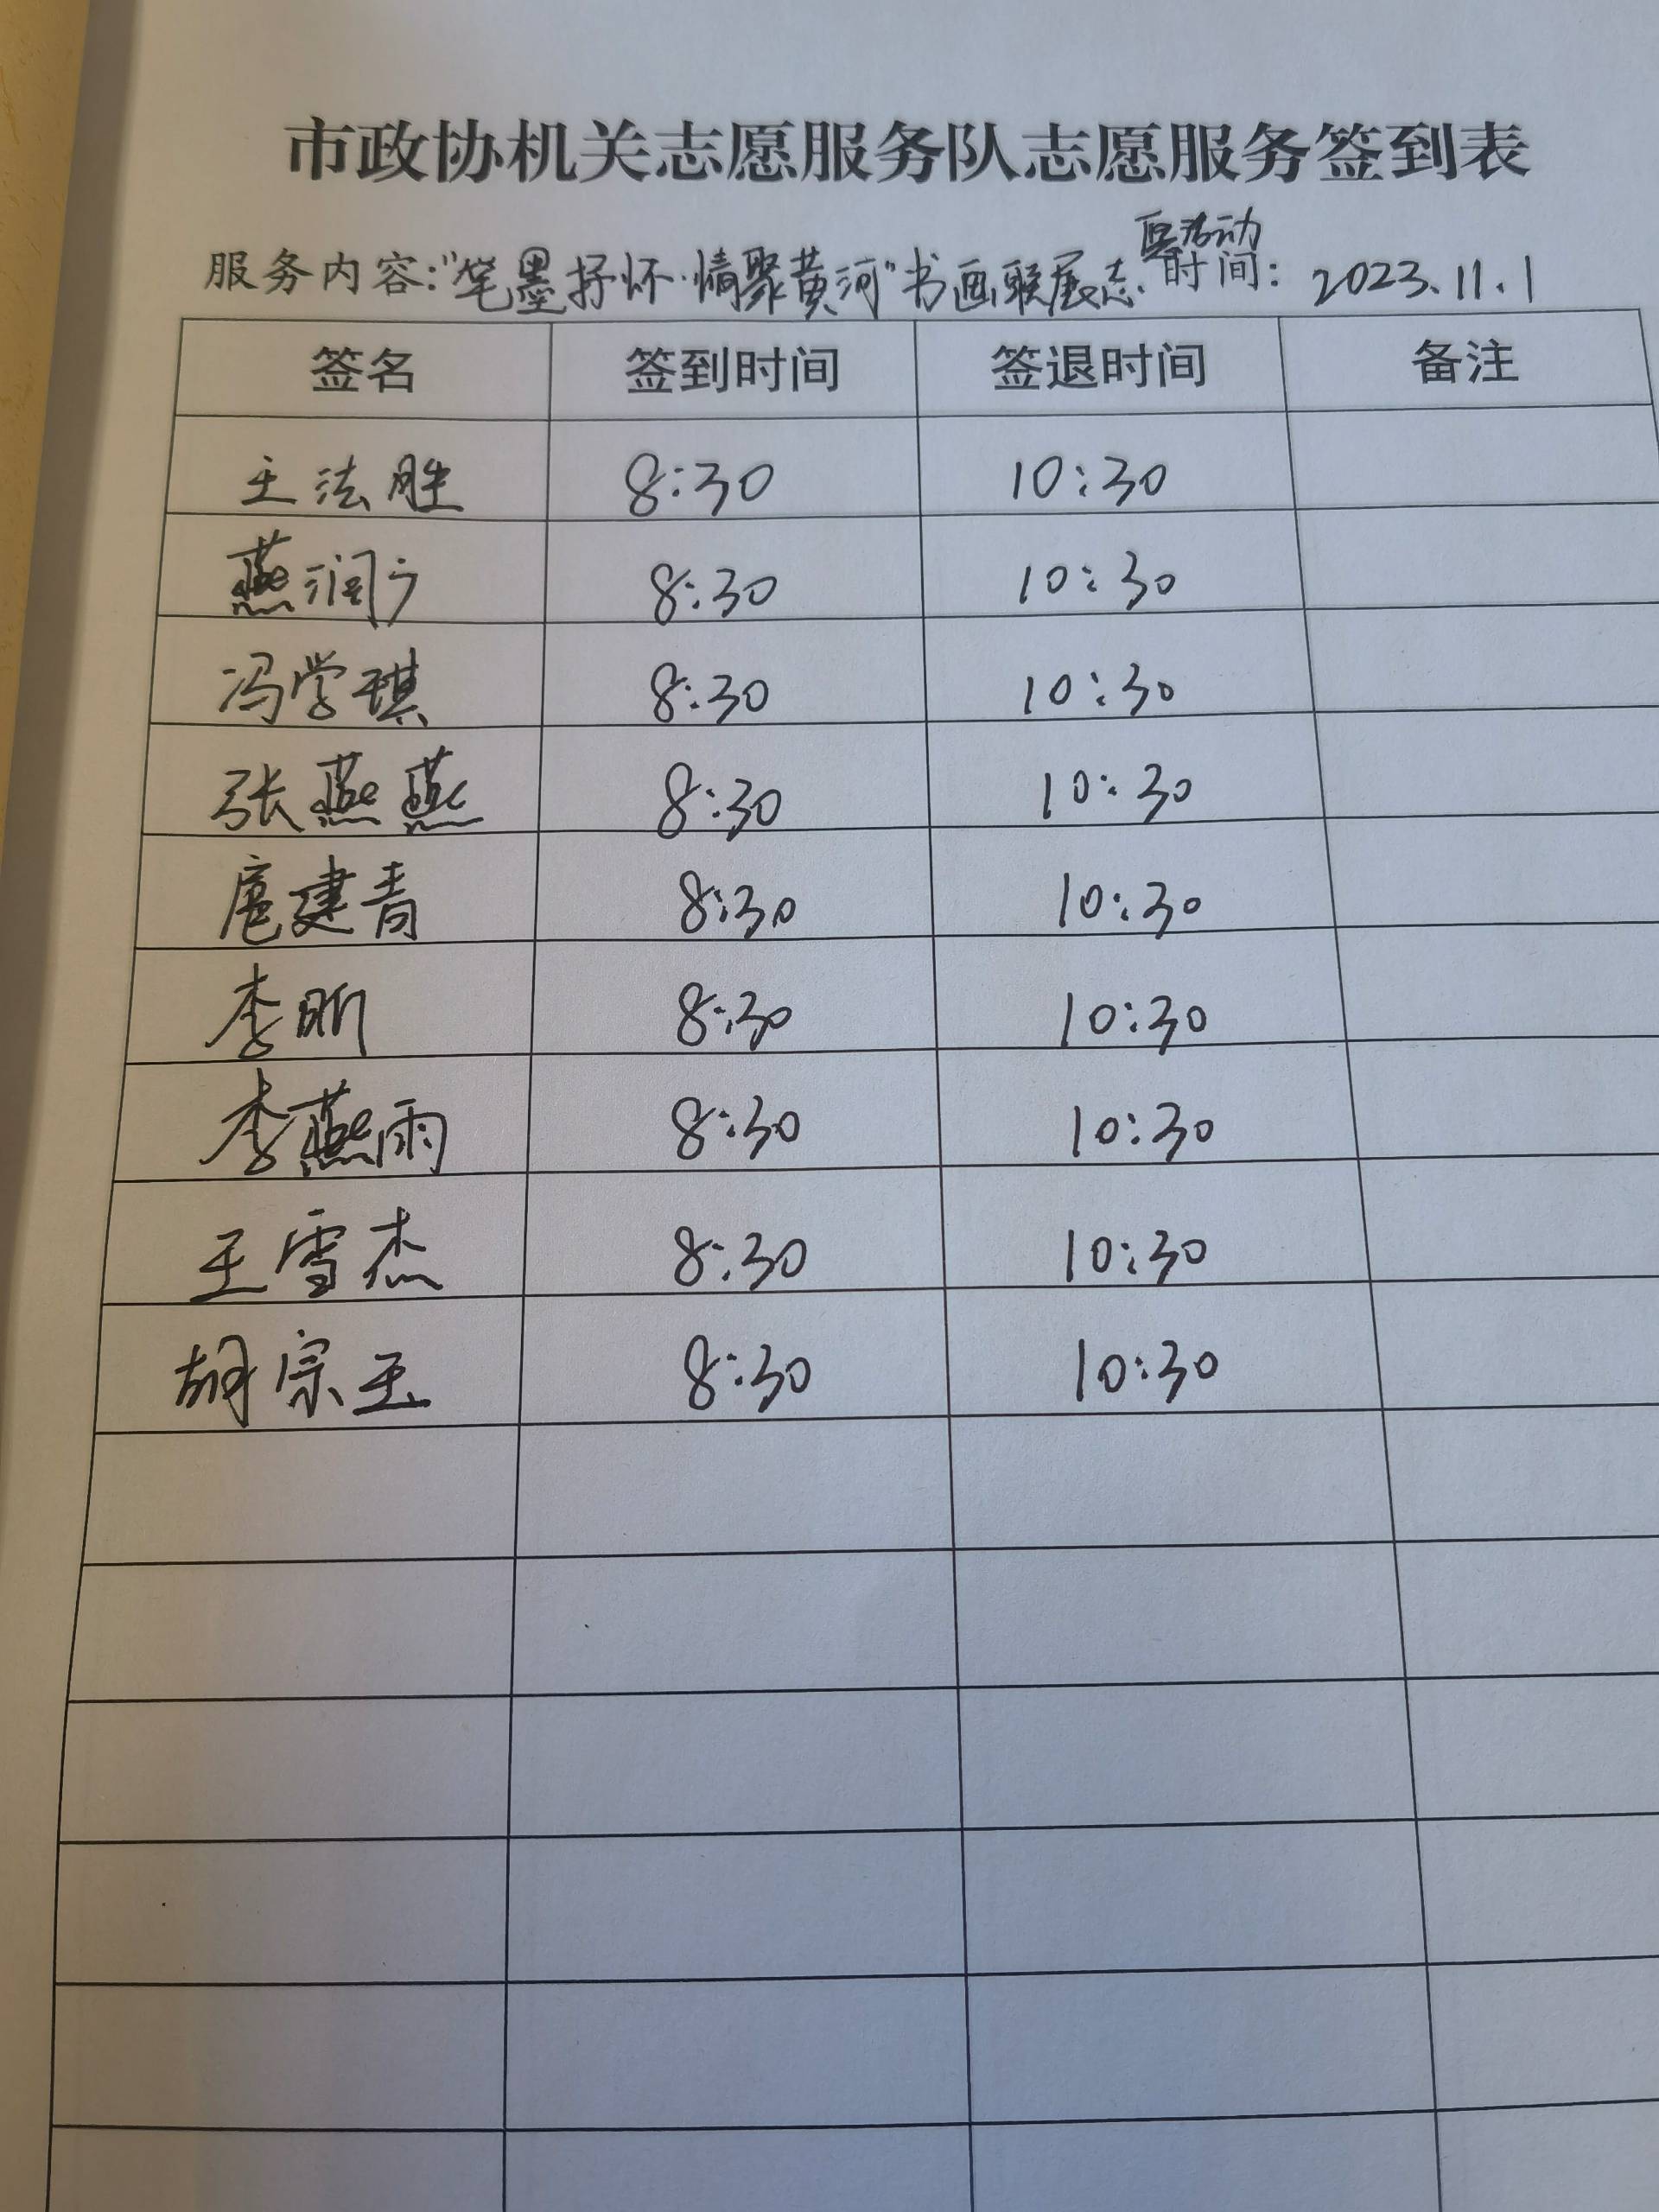 市政协机关志愿服务队志愿服务签到表
服务内容:"笔墨抒怀·情聚黄河"书画联展志愿活动 时间: 2023.11.1
签名 签到时间 签退时间 备注
王法胜 8:30 10:30
燕润广 8:30 10:30
冯学琪 8:30 10:30
张燕燕 8:30 10:30
扈建青 8:30 10:30
李昕 8:30 10:30
李燕雨 8:30 10:30
王雪杰 8:30 10:30
胡宗玉 8:30 10:30